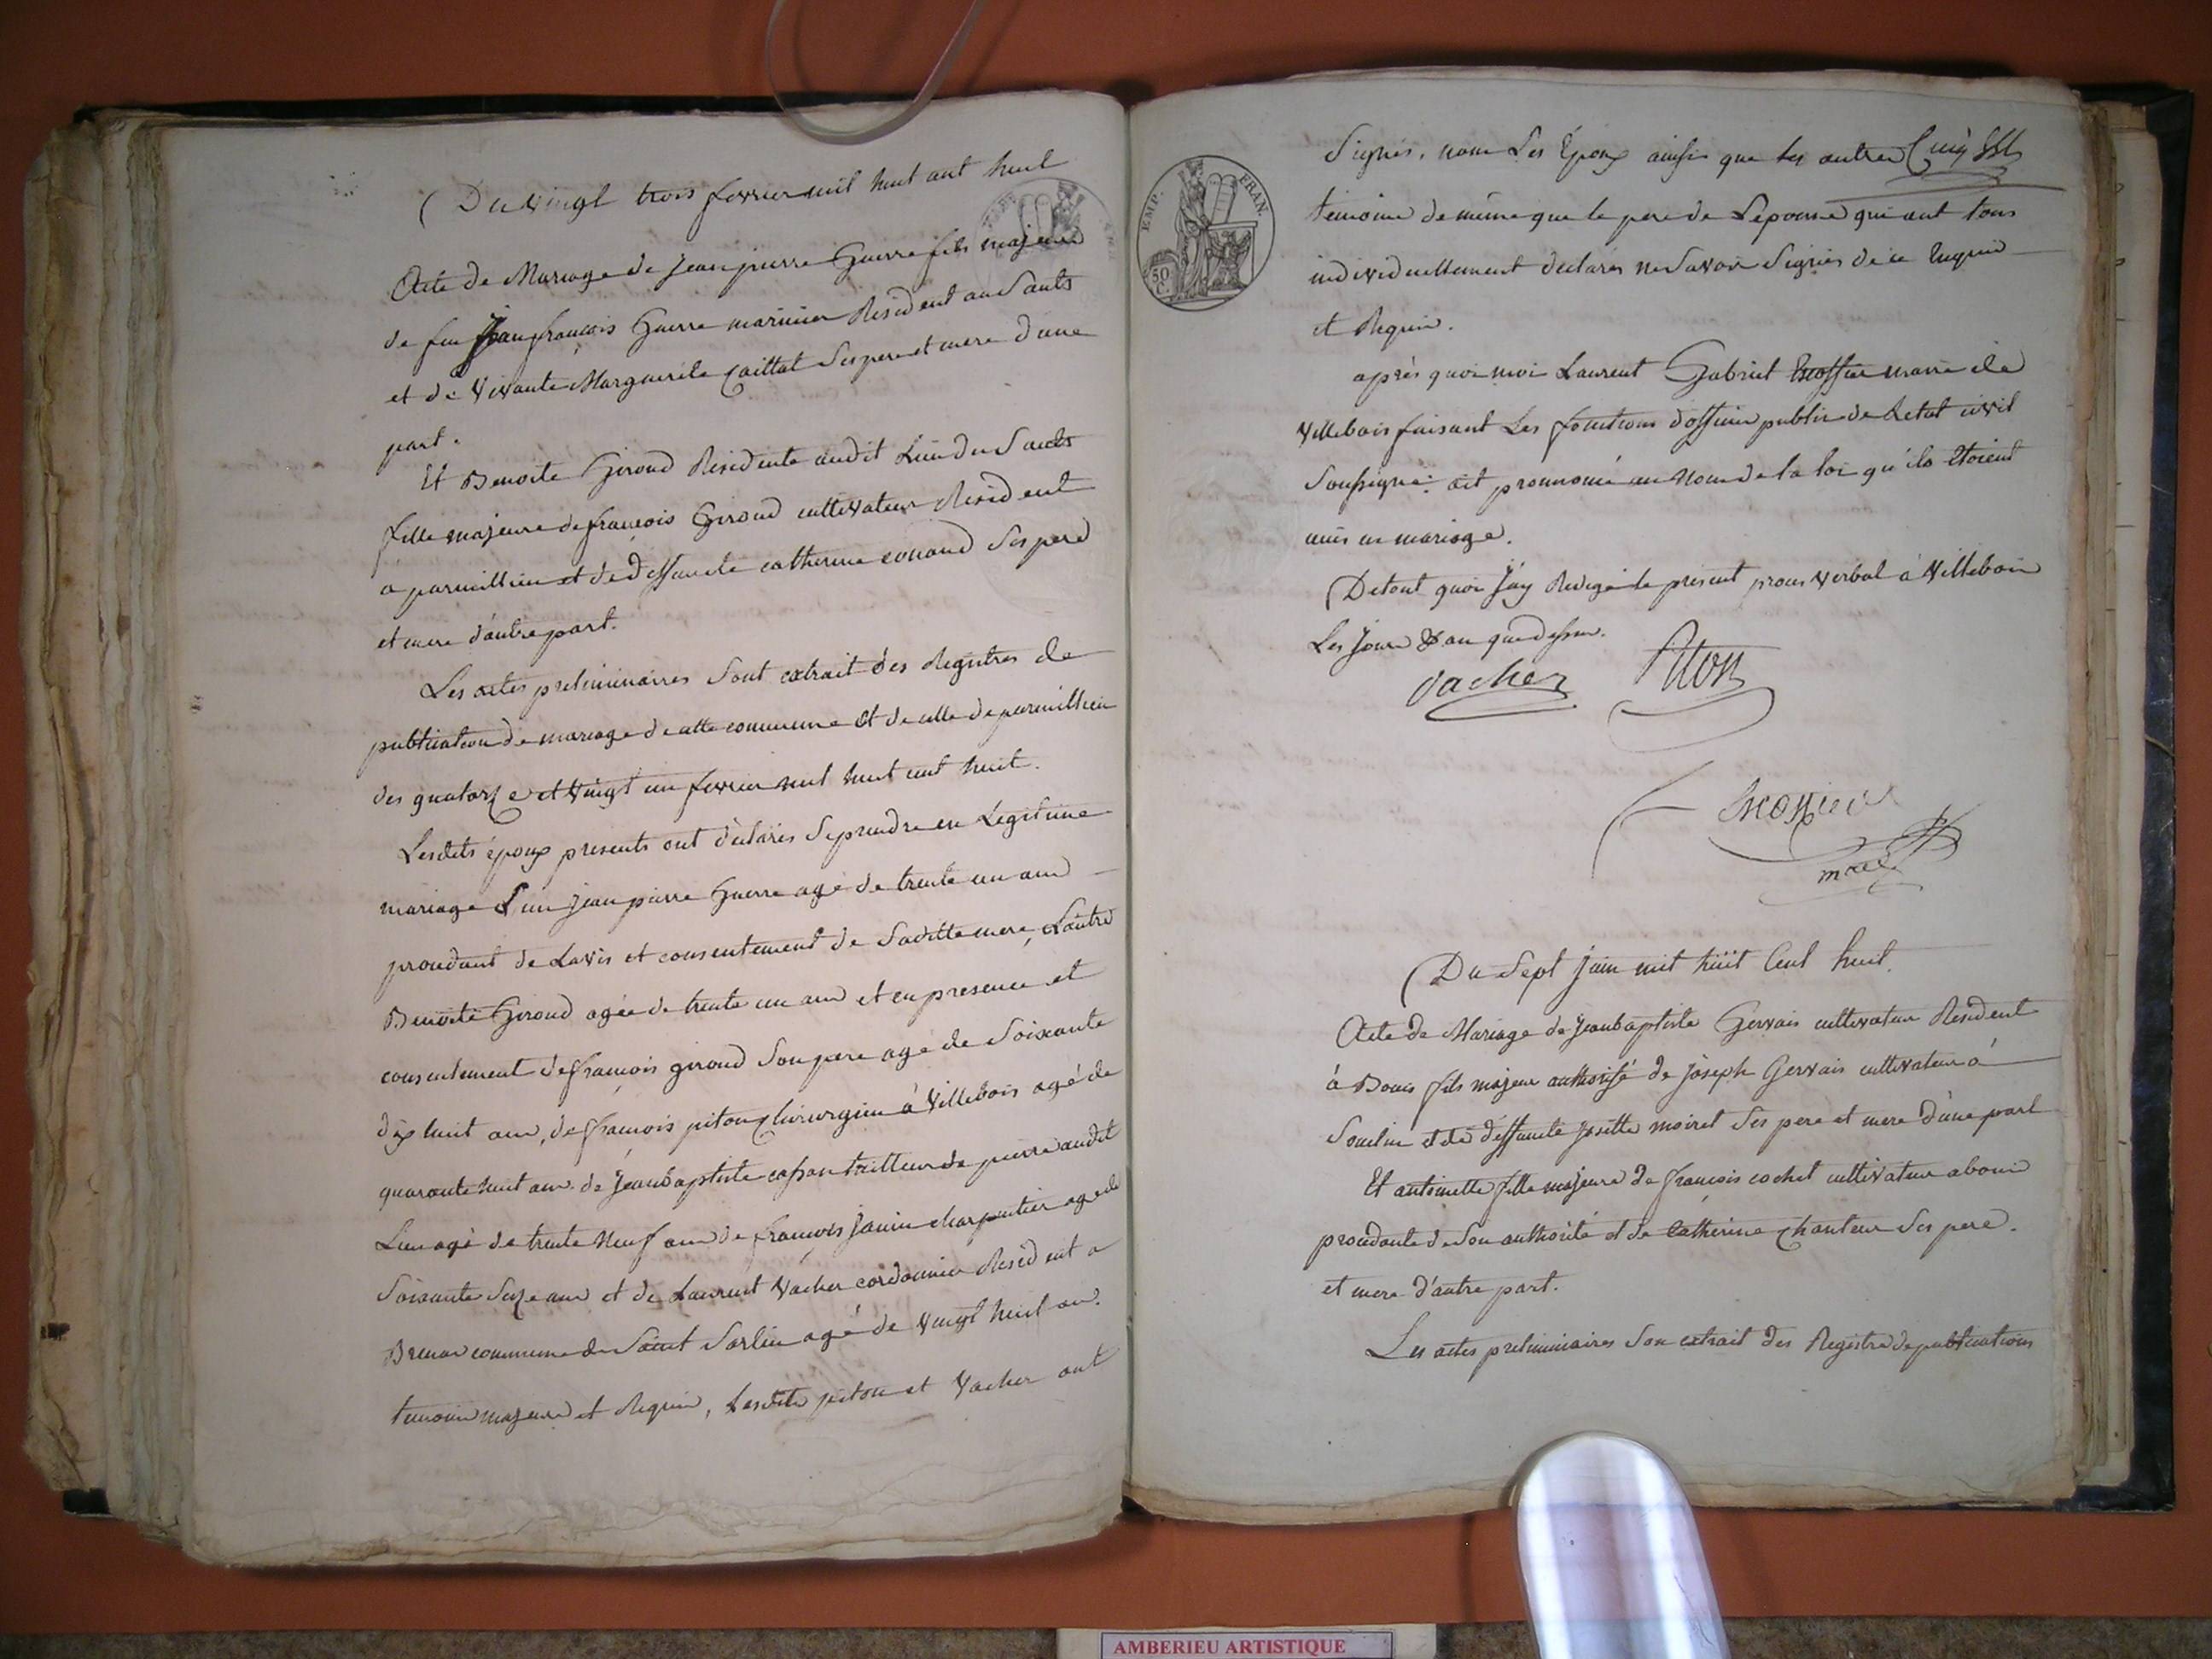 Du vingt trois fevrier mil huit cent huit
Acte de Mariage de jean pierre Guerre fils majeur
de feu Jean françois Guerre marinier Resident au Saults
et de vivante Marguerite Caillat Ses pere et mere d'une
part.
Et Benoite Giroud Residente audit Lieu du Saults
fille majeure de françois Giroud cultivateur Resident
a parmillieu et de deffuncte catherine conand Ses pere
et mere d'autre part.
Les actes preliminaires Sont extrait des Registres de
publication de mariage de cette commune et de celle de parmillieu
des quatorze et vingt un fevrier mil huit cent huit.
Lesdits époux presents ont déclarés Se prendre en Legitime
mariage L'un jean pierre Guerre agé de trente un ans
proceDant de Lavis et consentement de Saditte mere, L'autre
Benoite Giroud agée de trente un ans et en presence et
consentement de françois giroud Son pere agé de Soixante
dix huit ans, de françois piton Chirurgien à Villebois agé de
quarante huit ans. de Jean Baptiste casson tailleur de pierre audit
Lieu agé de trente Neuf ans de françois janin charpentier agé de
Soixante Seize ans et de Laurent Vacher cordonnier Resident a
Brenas commune de Saint Sorlin agé de vingt huit ans.
temoins majeurs et Requis, Lesdits piton et Vacher ont
EMP. FRAN.
50 C.
Signés, nom Les Epoux ainsi que les autres
temoins de même que le pere de L'epouse qui ont tous
individuellement declarés ne Savoir Signés de ce Enquis
et Requis.
après quoi moi Laurent Gabriel maire de
Villebois faisant Les fonctions d'officier public de L'etat civil
Soussigné. ait prononcé au Nom de la loi qu'ils etoient
unis en mariage.
De tout quoi J'ay Redigé le présent procès verbal à Villebois
Les Jours & an que dessus.
Vacher Piton
maire
Du Sept juin mil huit Cent huit.
Acte de Mariage de Jean baptiste Gervais cultivateur Resident
à Bouis fils majeur authorisé de Joseph Gervais cultivateur à
Souclin et de deffuncte josette moiret Ses pere et mere d'une part
Et antoinette fille majeure de françois cochet cultivateur a bouis
procedante de Son authorité et de Catherine Chanteur Ses pere.
et mere d'autre part.
Les actes preliminaires Son extrait des Registre de publications
AMBERIEU ARTISTIQUE